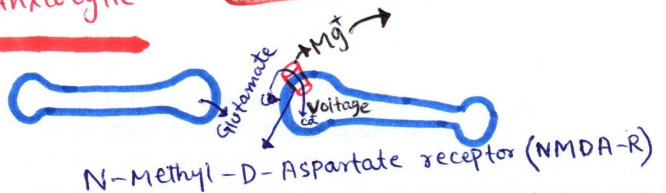 Mg⁺
Glutamate
Voltage
N-Methyl-D-Aspartate receptor (NMDA-R)